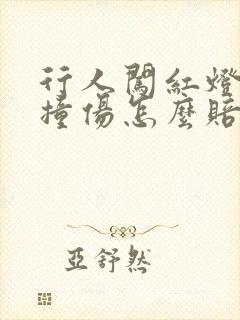 行人闖紅燈
撞傷怎麼賠
亞舒然